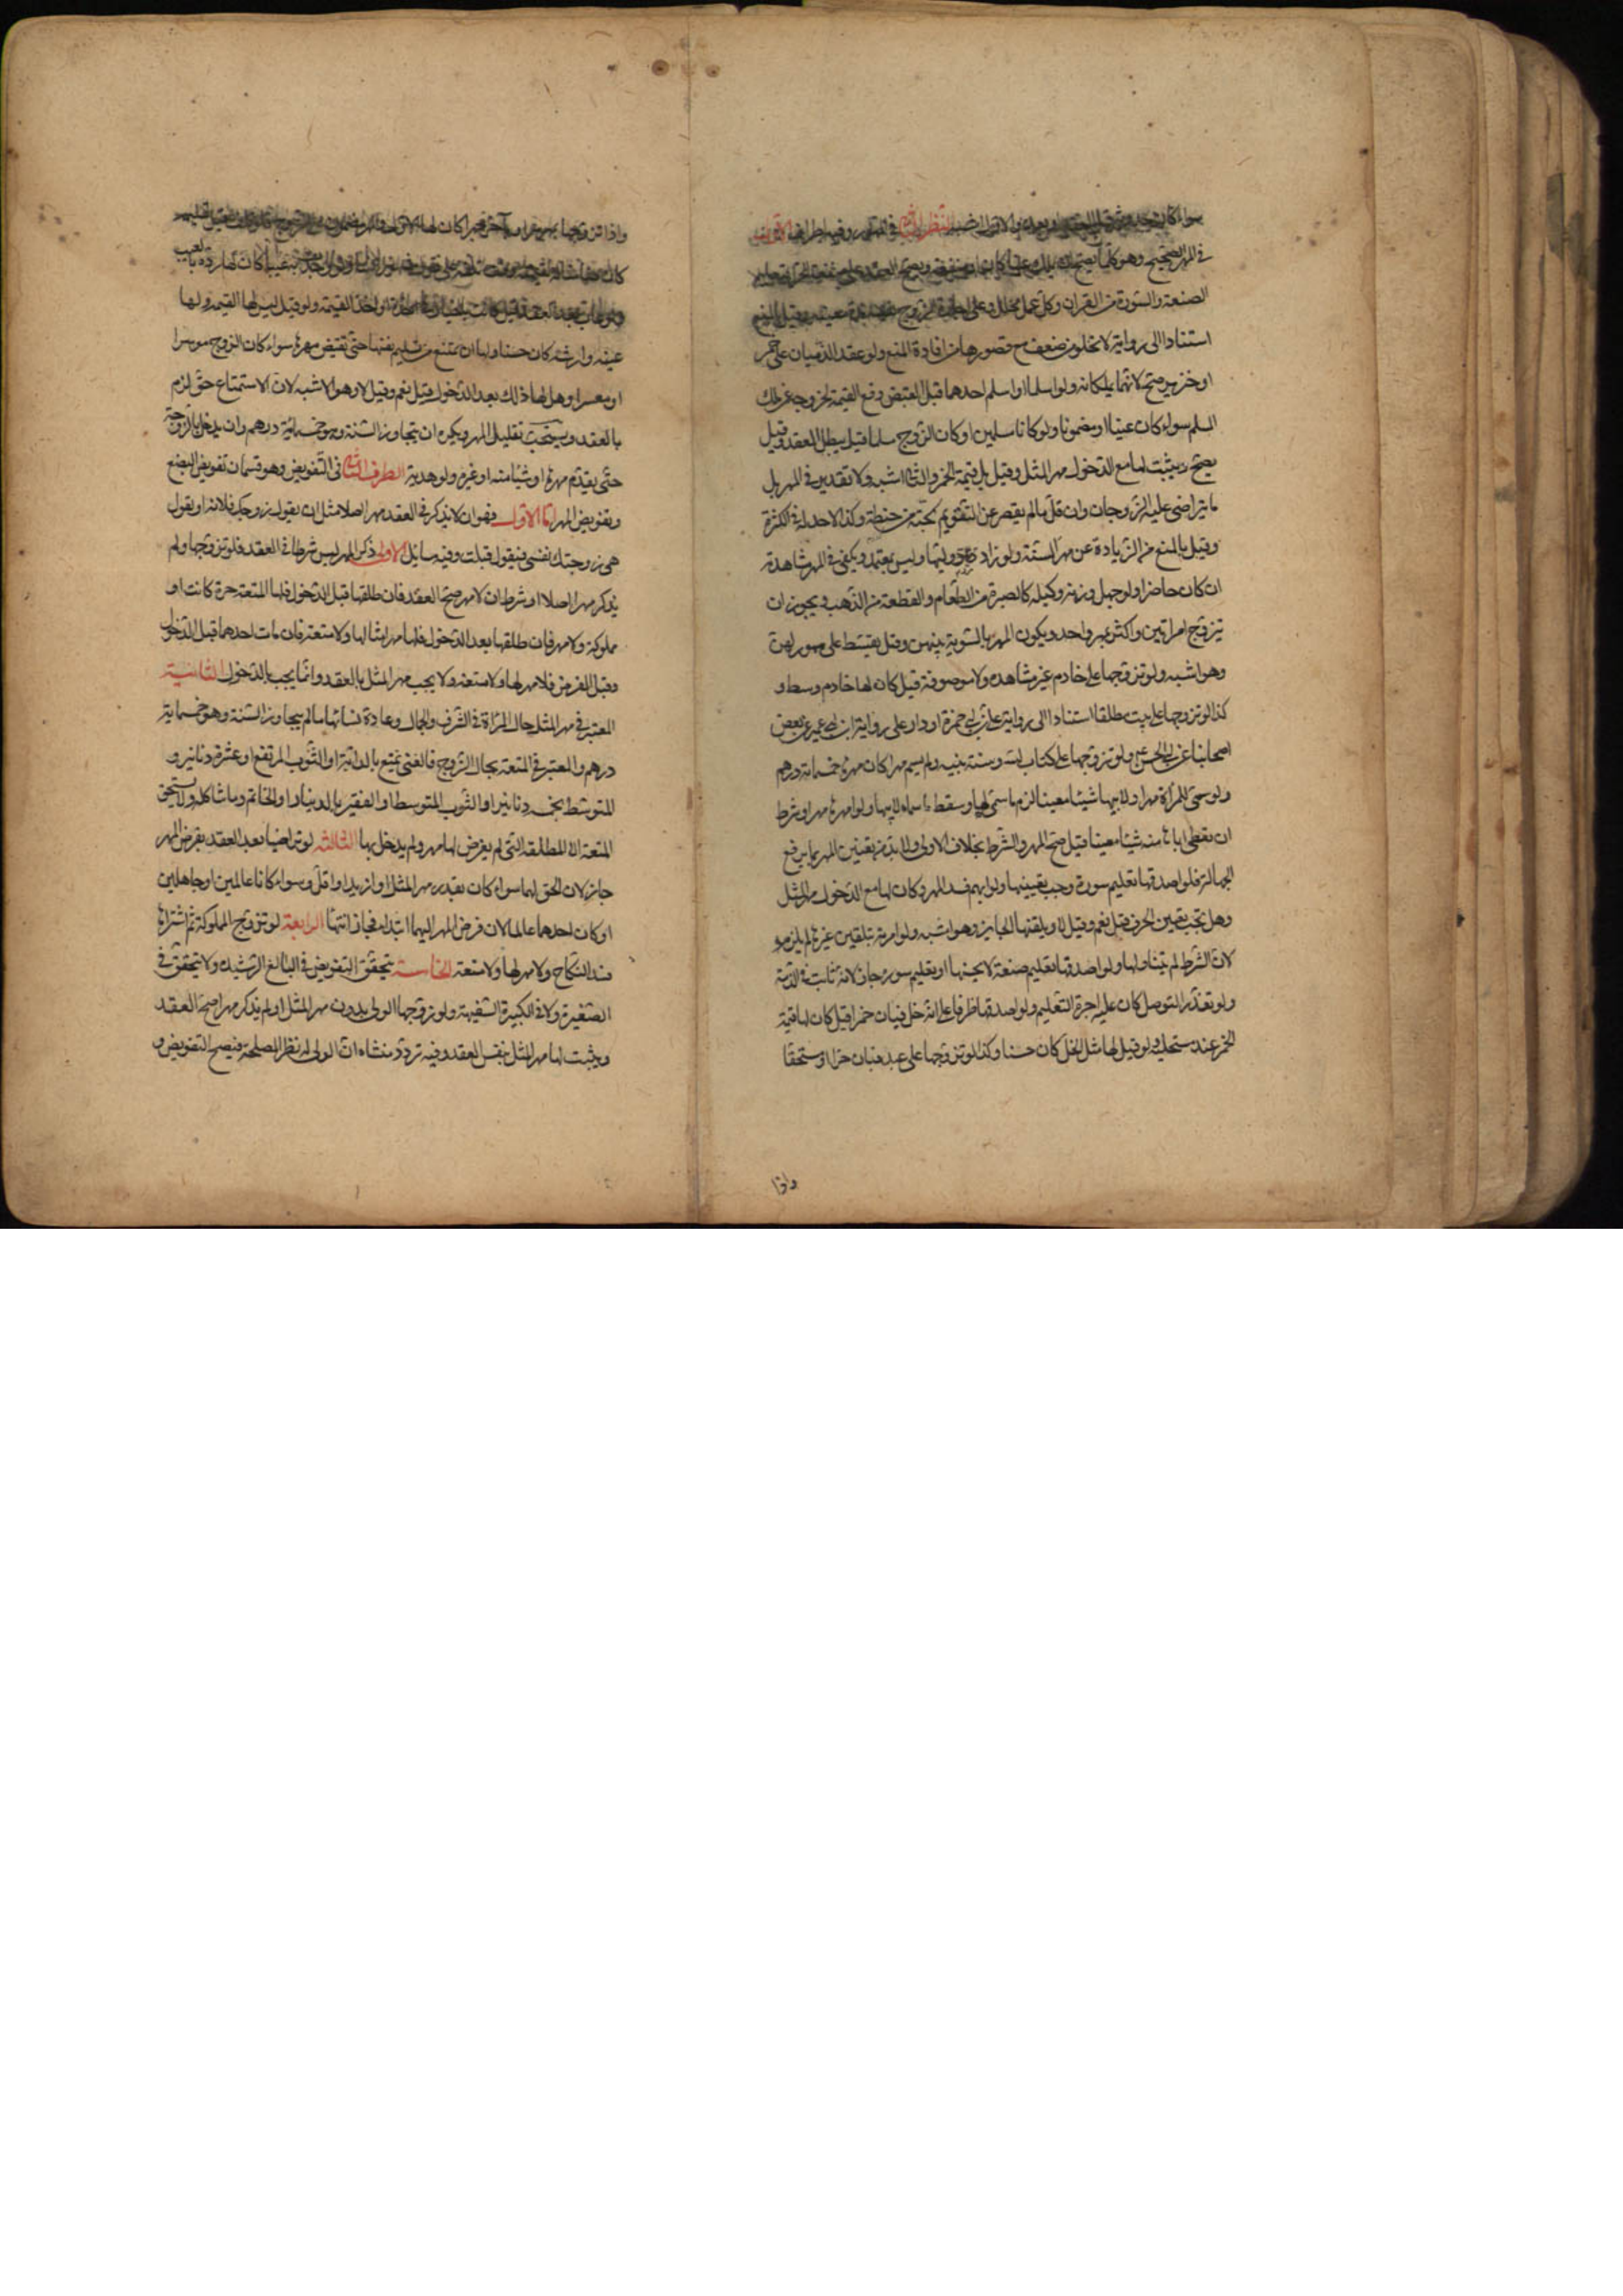 سواء كان حدوثه قبل العقد او بعده والاول اشبه النظر الثانى فى المهور وفيه اطراف الاول
فى المهر الصحيح وهو كلما يصح ان يملك عينا كان او منفعة ويصح العقد على منفعة الحر كتعليم
الصنعة والسورة من القران وكل عمل محلل وعلى اجارة الزوج نفسه مدة معينة وقيل بالمنع
استنادا الى رواية لا تخلو من ضعف مع قصورها من افادة المنع ولو عقد الذميان على خمر
او خنزير صح لانهما يملكانه ولو اسلما او اسلم احدهما قبل القبض دفع القيمة لخروجه عن ملك
المسلم سواء كان عينا او مضمونا ولو كانا مسلمين او كان الزوج مسلما قيل يبطل العقد وقيل
يصح ويثبت لها مع الدخول مهر المثل وقيل بل قيمة الخمر والثانى اشبه ولا تقدير فى المهر بل
ما يتراضى عليه الزوجان وان قل ما لم يقصر عن التقويم كحبة من حنطة وكذا لا حد له فى الكثرة
وقيل بالمنع من الزيادة عن مهر السنة ولو زاد رد اليها وليس بمعتمد ويكفى فى المهر مشاهدته
ان كان حاضرا ولو جهل وزنه وكيله كالصبرة من الطعام والقطعة من الذهب ويجوز ان
يتزوج امراتين واكثر بمهر واحد ويكون المهر بالسوية بينهن وقيل يقسط على مهور لهن
وهو اشبه ولو تزوجها على خادم غير مشاهد ولا موصوفة قيل كان لها خادم وسط و
كذا لو تزوجها على بيت مطلقا استنادا الى رواية على بن ابى حمزة او دار على رواية ابن ابى عمير عن بعض
اصحابنا عن ابى الحسن ع ولو تزوجها على كتاب الله وسنة نبيه ولم يسم مهرا كان مهرها خمسمائة درهم
ولو سمى للمراة مهرا ولابيها شيئا معينا لزم ما سمى لها وسقط ما سماه لابيها ولو امهرها مهرا وشرط
ان تعطى اباها منه شيئا معينا قيل صح المهر والشرط بخلاف الاولى ولا بد من تعيين المهر بما يرفع
الجهالة فلو اصدقها تعليم سورة وجب تعيينها ولو ابهم فسد المهر وكان لها مع الدخول مهر المثل
وهل تجب تعيين الحرف قيل نعم وقيل لا ويلقنها الجايز وهو اشبه ولو امرته بتلقين غيرها لم يلزمه
لان الشرط لم يتناولها ولو اصدقها تعليم صنعة لا يحسنها او تعليم سورة جاز لانه ثابت فى الذمة
ولو تعذر التوصل كان عليه اجرة التعليم ولو اصدقها ظرفا على انه خل فبان خمرا قيل كان لها قيمة
الخمر عند مستحليه ولو قيل لها مثل الخل كان حسنا وكذا لو تزوجها على عبد فبان حرا او مستحقا
واذا
واذا تزوجها بمهر سرا وبآخر جهرا كان لها الاول والمهر مضمون على الزوج فلو تلف قبل تسليمه
كان ضامنا له بقيمته وقت تلفه على قول مشهور لنا ولو وجدت به عيبا كان لها رده بالعيب
ولو عاب بعد العقد قيل كانت بالخيار فى اخذه او اخذ القيمة ولو قيل ليس لها القيمة ولها
عينه وارشه كان حسنا ولها ان تمتنع من تسليم نفسها حتى تقبض مهرها سواء كان الزوج موسرا
او معسرا وهل لها ذلك بعد الدخول قيل نعم وقيل لا وهو الاشبه لان الاستمتاع حق لزم
بالعقد ويستحب تقليل المهر ويكره ان يتجاوز السنة وهو خمسمائة درهم وان يدخل بالزوجة
حتى يقدم مهرها او شيئا منه او غيره ولو هدية الطرف الثانى فى التفويض وهو قسمان تفويض البضع
وتفويض المهر اما الاول فهو ان لا يذكر فى العقد مهر اصلا مثل ان يقول زوجتك فلانة او يقول
هى زوجتك نفسى فيقول قبلت وفيه مسائل الاولى ذكر المهر ليس شرطا فى العقد فلو تزوجها ولم
يذكر مهرا اصلا او شرط ان لا مهر صح العقد فان طلقها قبل الدخول فلها المتعة حرة كانت او
مملوكة ولا مهر فان طلقها بعد الدخول فلها مهر امثالها ولا متعة فان مات احدهما قبل الدخول
وقبل الفرض فلا مهر لها ولا متعة ولا يجب مهر المثل بالعقد وانما يجب بالدخول الثانية
المعتبر فى مهر المثل حال المراة فى الشرف والجمال وعادة نسائها ما لم يتجاوز السنة وهو خمسماية
درهم والمعتبر فى المتعة بحال الزوج فالغنى يمتع بالدابة او الثوب المرتفع او عشرة دنانير و
المتوسط بخمسة دنانير او الثوب المتوسط او الفقير بالدينار او الخاتم وما شاكله ولا يستحق
المتعة الا المطلقة التى لم يفرض لها مهر ولم يدخل بها الثالثة لو تراضيا بعد العقد بفرض المهر
جاز لان الحق لهما سواء كان بقدر مهر المثل او ازيد او اقل وسواء كانا عالمين او جاهلين
او كان احدهما عالما لان فرض المهر اليهما ابتداء فجاز انتهاء الرابعة لو تزوج المملوكة ثم اشتراها
فسد النكاح ولا مهر لها ولا متعة الخامسة يتحقق التفويض فى البالغ الرشيدة ولا تتحقق فى
الصغيرة ولا فى الكبيرة السفيهة ولو زوجها الولى بدون مهر المثل او لم يذكر مهرا صح العقد
ويثبت لها مهر المثل بنفس العقد وفيه تردد منشاه ان الولى له نظر المصلحة فيصح التفويض و